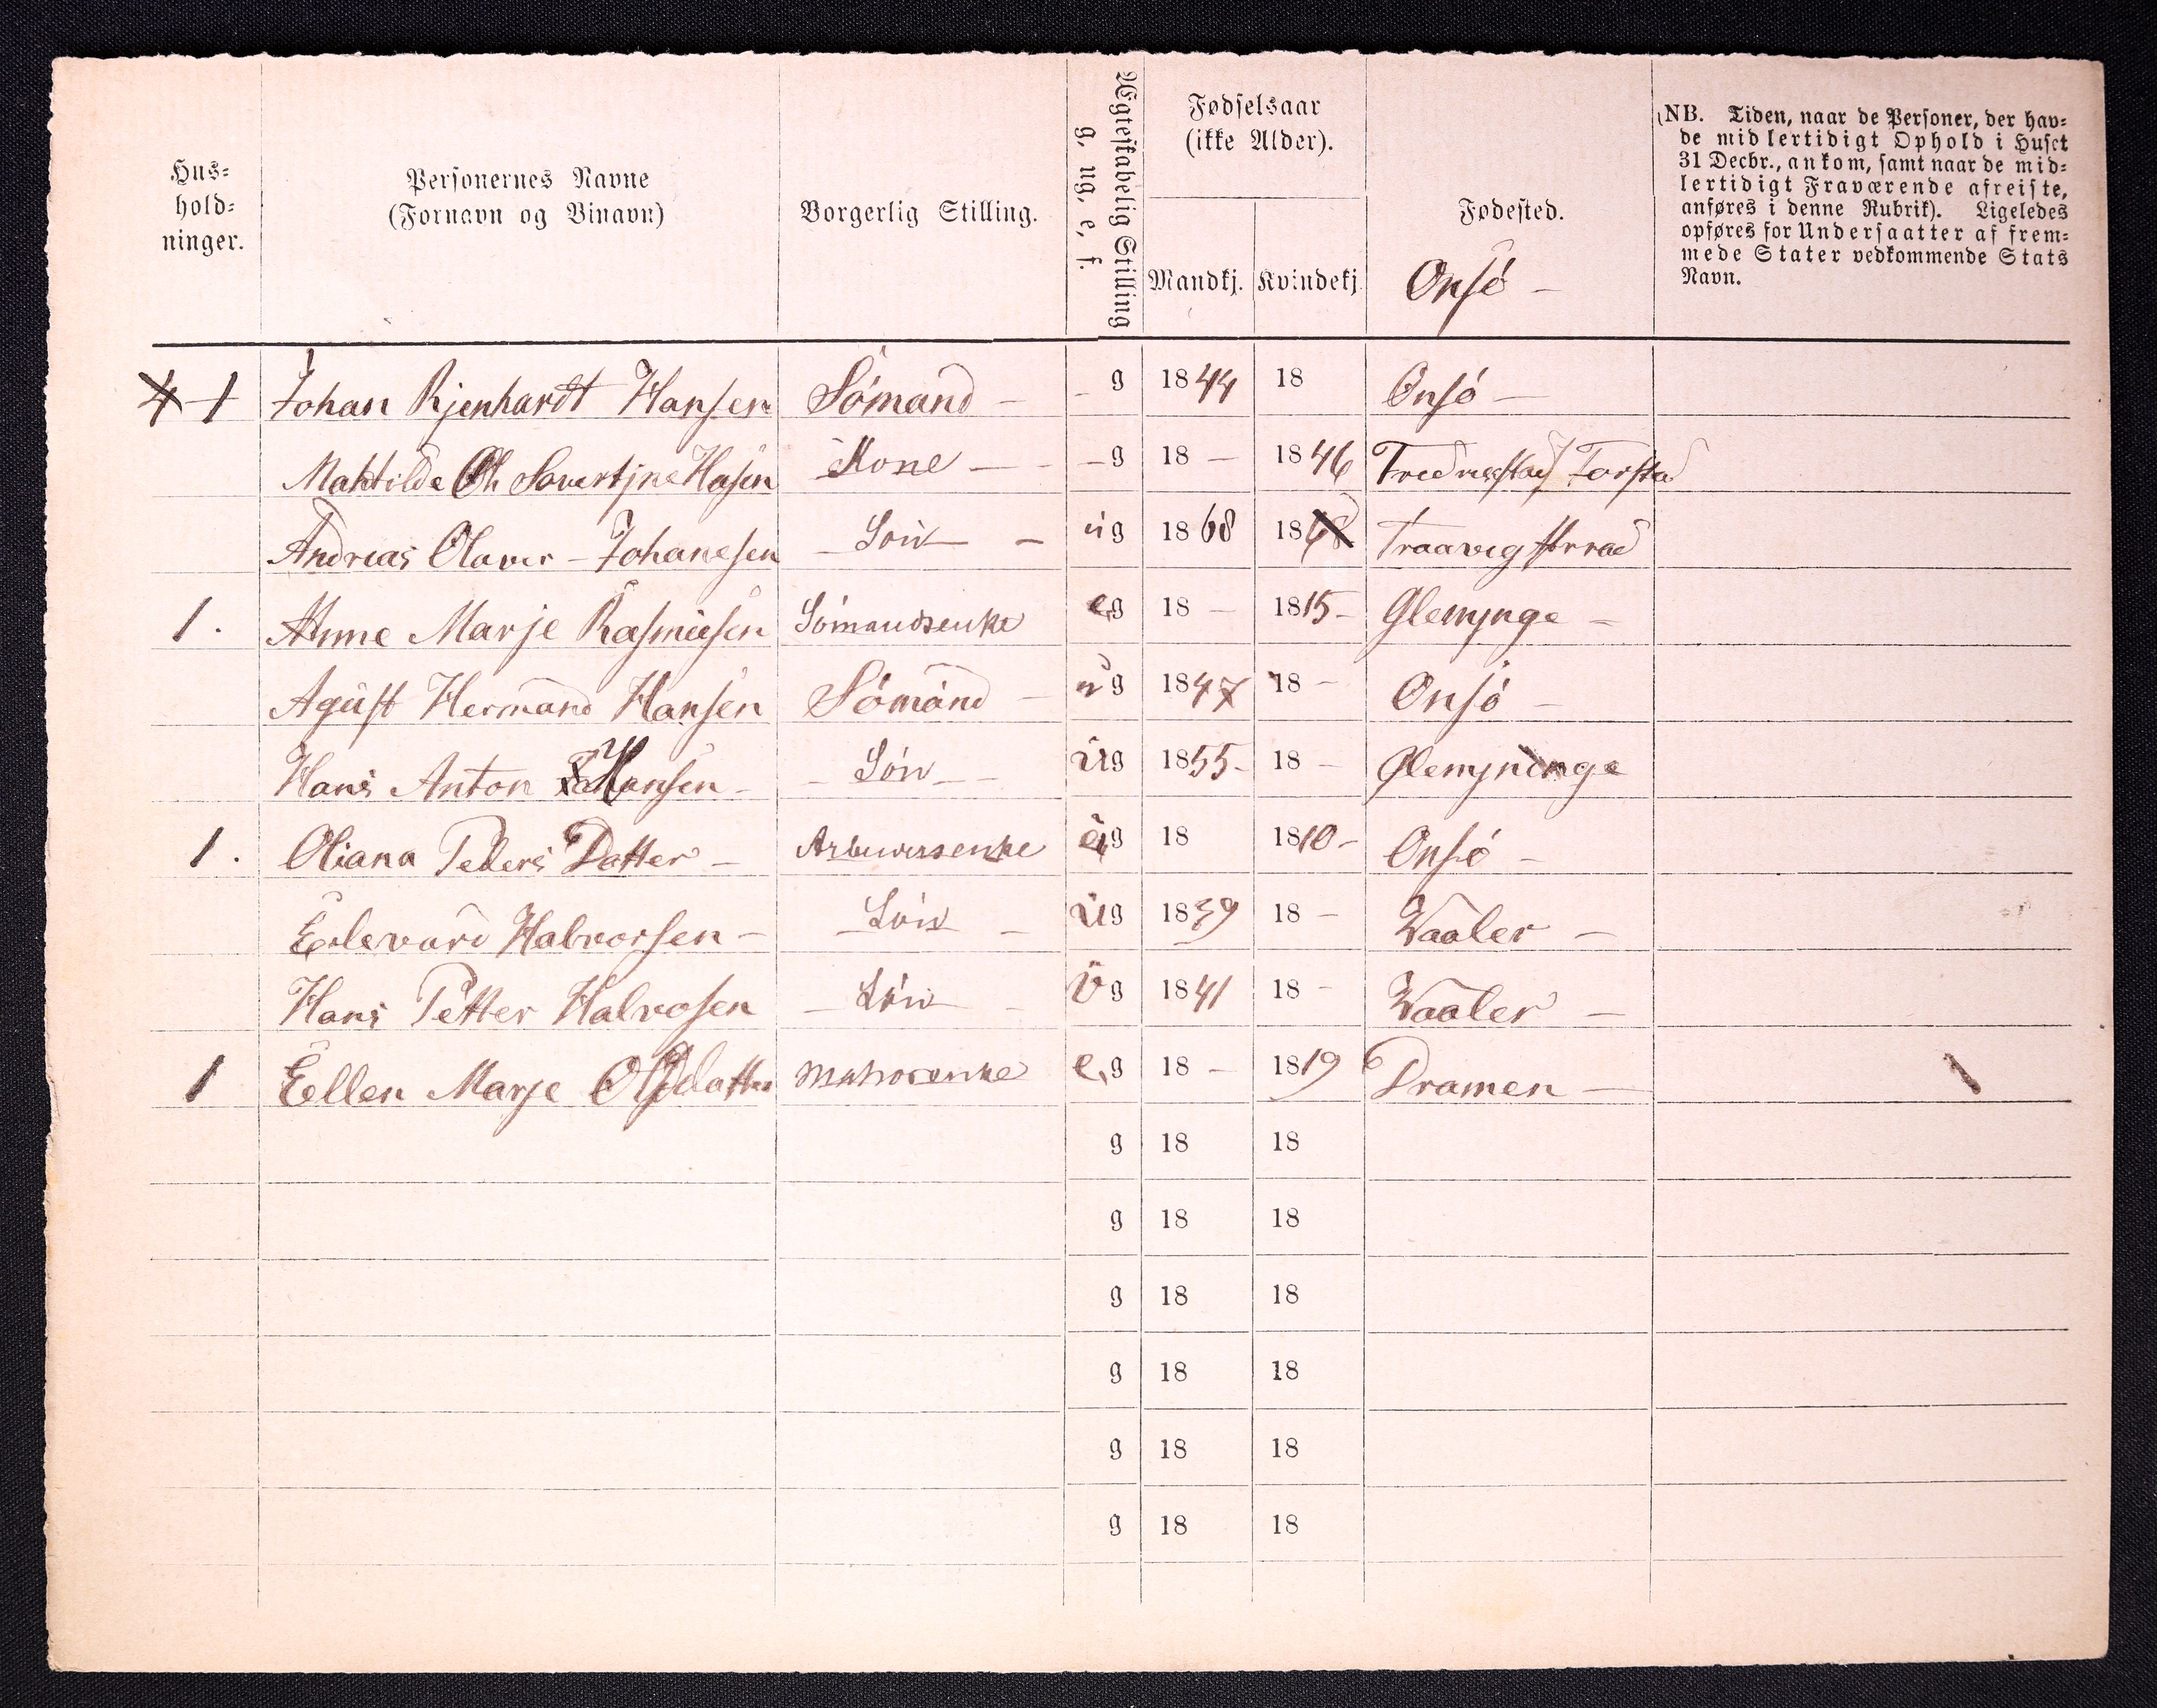 Hus-
hold-
ninger.
Personernes Navne
(Fornavn og Binavn)
Borgerlig Stilling.
Ægteskabelig Stilling
g. ug. e. f.
Fødselsaar
(ikke Alder).
Mandkj. Kvindekj.
Fødested.
Onsó -
(NB. Tiden, naar de Personer, der hav-
de midlertidigt Ophold i Huset
31 Decbr., ankom, samt naar de mid-
lertidigt Fraværende afreiste,
anføres i denne Rubrik). Ligeledes
opføres for Undersaatter af frem-
mede Stater vedkommende Stats
Navn.
1 Johan Rjenhardt Hansen Sómand - - g 1844 18 Onsó -
Mahtilde Hasen Kone - - - g 18 - 1846 Torstad
Andreas Olaves - Johanesen - Són - ug 1868 18
1. Anne Marje Rasmusen Sómandsenke eg 18 - 1815 - Glemjnge -
Agust Hermand Hansen Sómand - ug 1847 18 - Onsó -
Hans Anton Hansen - - Són - - ug 1855 - 18 - Glemjninge
1. Oliana Peders Datter - Arbeidersenke eg 18 1810 - Onsó -
Edevard Halvorsen - - Són - ug 1839 18 - Vaaler -
Hans Petter Halvosen - Són - ug 1841 18 - Vaaler -
1 Eellen Marje Olsdatter e,g 18 - 1819 Dramen - 1
g 18 18
g 18 18
g 18 18
g 18 18
g 18 18
g 18 18